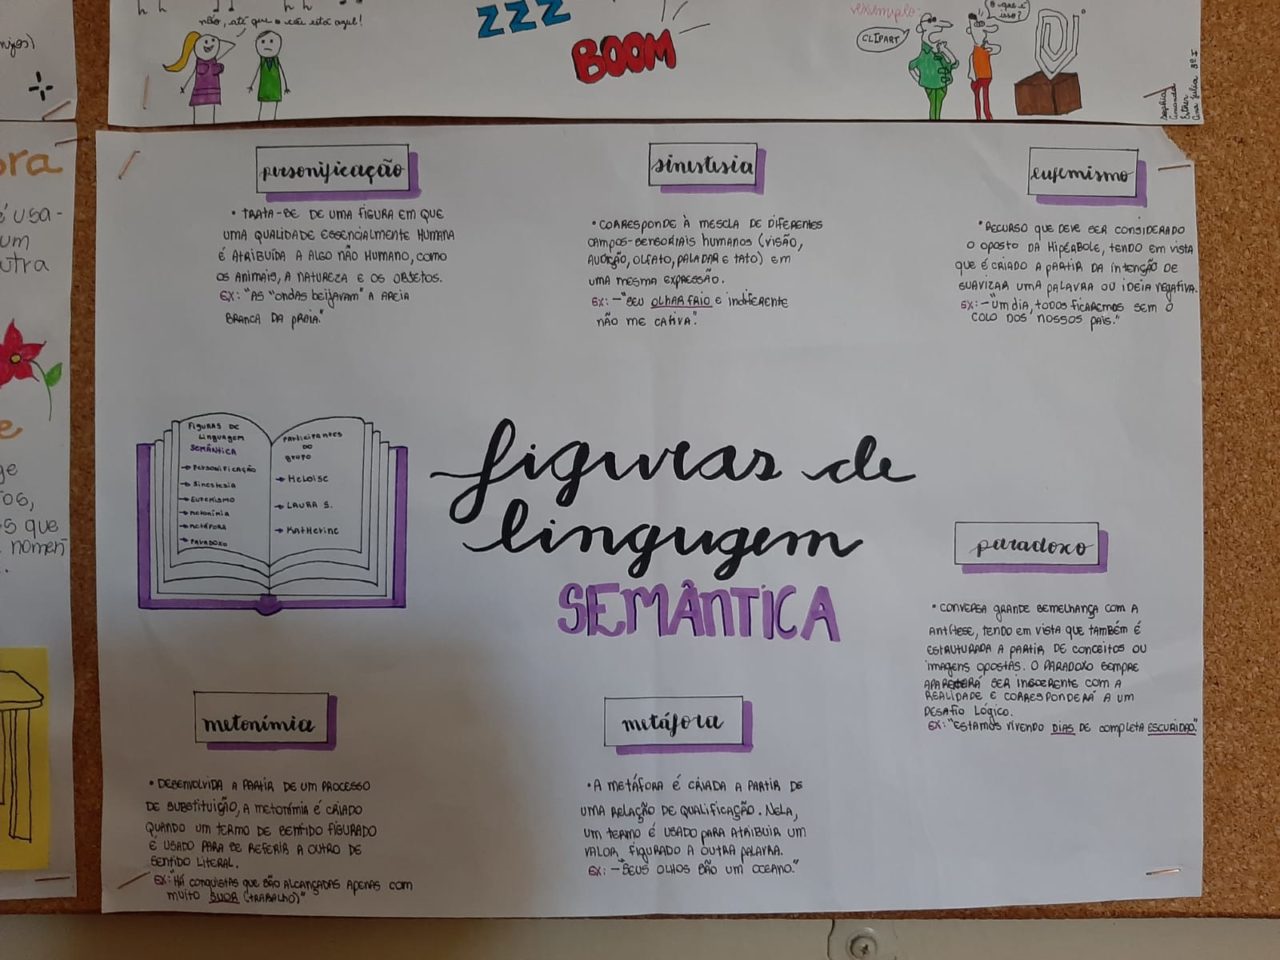 não, até que o céu está azul!
ZZZ
BOOM
exemplo:
CLIPART
O que é isso?
Sophia
Amanda
Esther
Ana Julia 8º I
ora
é usa-
um
utra
e
ge
os,
s que
nomen
personificação
• TRATA-SE DE UMA FIGURA EM QUE
UMA QUALIDADE ESSENCIALMENTE HUMANA
É ATRIBUÍDA A ALGO NÃO HUMANO, COMO
OS ANIMAIS, A NATUREZA E OS OBJETOS.
EX: "AS "ondas beijavam" A AREIA
BRANCA DA PRAIA."
sinestesia
• CORRESPONDE À MESCLA DE DIFERENTES
CAMPOS-SENSORIAIS HUMANOS (VISÃO,
AUDIÇÃO, OLFATO, PALADAR E TATO) EM
UMA MESMA EXPRESSÃO.
EX: -"SEU OLHAR FRIO E INDIFERENTE
NÃO ME CATIVA".
eufemismo
• RECURSO QUE DEVE SER CONSIDERADO
O OPOSTO DA HIPÉRBOLE, TENDO EM VISTA
QUE É CRIADO A PARTIR DA INTENÇÃO DE
SUAVIZAR UMA PALAVRA OU IDEIA NEGATIVA.
EX: -"UM DIA, TODOS FICAREMOS SEM O
COLO DOS NOSSOS PAIS."
FIGURAS DE
LINGUAGEM
SEMÂNTICA
→ PERSONIFICAÇÃO
→ SINESTESIA
→ EUFEMISMO
→ METONÍMIA
→ METÁFORA
→ PARADOXO
PARTICIPANTES
DO
GRUPO
→ HELOISE
→ LAURA S.
→ KATHERINE
figuras de
lingugem
SEMÂNTICA
paradoxo
• CONVERSA GRANDE SEMELHANÇA COM A
ANTÍTESE, TENDO EM VISTA QUE TAMBÉM É
ESTRUTURADA A PARTIR DE CONCEITOS OU
IMAGENS OPOSTAS. O PARADOXO SEMPRE
SER INCOERENTE COM A
REALIDADE E CORRESPONDERÁ A UM
DESAFIO LÓGICO.
EX: "ESTAMOS VIVENDO DIAS DE COMPLETA ESCURIDÃO".
metonímia
• DESENVOLVIDA A PARTIR DE UM PROCESSO
DE SUBSTITUIÇÃO, A METONÍMIA É CRIADO
QUANDO UM TERMO DE SENTIDO FIGURADO
É USADO PARA SE REFERIR A OUTRO DE
SENTIDO LITERAL.
EX: "HÁ CONQUISTAS QUE SÃO ALCANÇADAS APENAS COM
MUITO SUOR (TRABALHO)"
metáfora
• A METÁFORA É CRIADA A PARTIR DE
UMA RELAÇÃO DE QUALIFICAÇÃO. NELA,
UM TERMO É USADO PARA ATRIBUIR UM
VALOR, FIGURADO A OUTRA PALAVRA.
EX: -"SEUS OLHOS SÃO UM OCEANO."